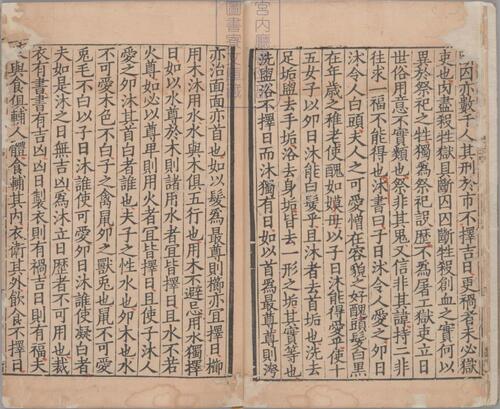 囚亦數千人其刑於市不擇吉日更禍者未必獄
吏也肉盡殺牲獄具斷囚囚斷牲殺創血之實何以
異於祭祀之牲獨爲祭祀設歷不爲屠工獄吏立日
世俗用意不實類也祭非其鬼又信非其諱持二非
往求一福不能得也沐書曰子日沐令人愛之卯日
沐令人白頭夫人之可愛憎在容貌之好醜頭髮白黑
在年歲之稚老使醜如嫫母以子日沐能得愛乎使十
五女子以卯日沐能白髮乎且沐者去首垢也洗去
足垢盥去手垢浴去身垢皆去一形之垢其實等也
洗盥浴不擇日而沐獨有日如以首爲最尊尊則浴
亦治面面亦首也如以髮爲最尊則櫛亦宜擇日櫛
用木沐用水水與木俱五行也用木不避忌用水獨擇
日如以水尊於木則諸用水者宜皆擇日且水不若
火尊如必以尊卑則用火者宜皆擇日且使子沐人
愛之卯沐其首白者誰也夫子之性水也卯木也水
不可愛木色不白子之禽鼠卯之獸兔也鼠不可愛
兔毛不白以子日沐誰使可愛卯日沐誰使凝白者
夫如是沐之日無吉凶爲沐立日歷者不可用也裁
衣有書書有吉凶凶日製衣則有禍吉日則有福夫
衣與食俱輔人體食輔其內衣衛其外飲食不擇日